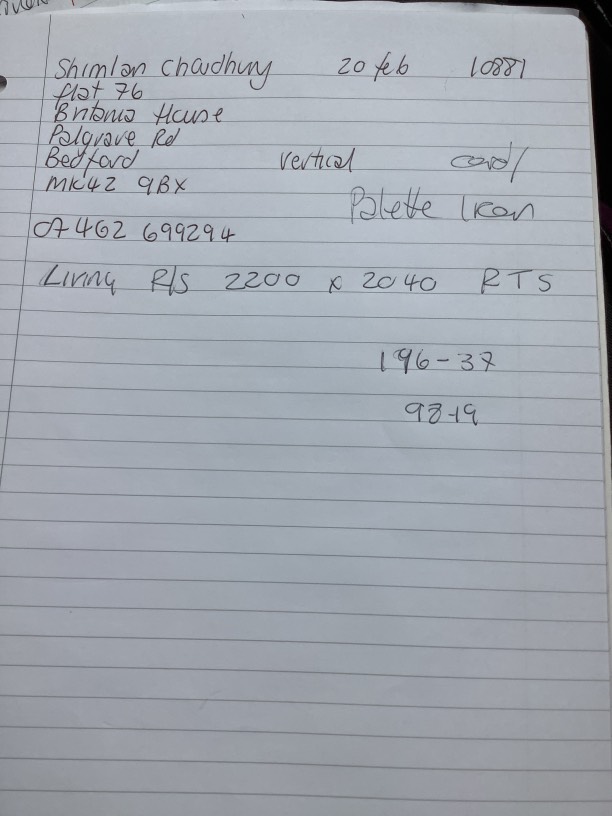 Shimlan Chaudhury 20 feb 10881
flat 76
Britania House
Palgrave Rd
Bedford vertical cord/
MK42 9BX
Palette Ikon
07462 699294
Living R/S 2200 x 2040 RTS
196-37
98-19